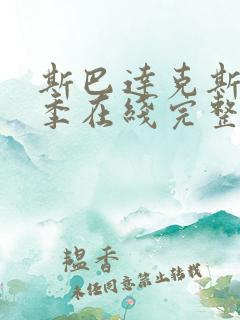 斯巴达克斯
季在线完整
韫香
未经同意禁止转载